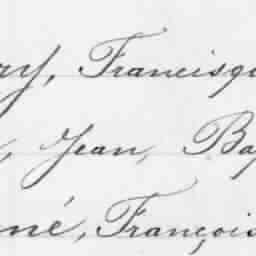 ry, Francisq
, Jean, Bap
né, François